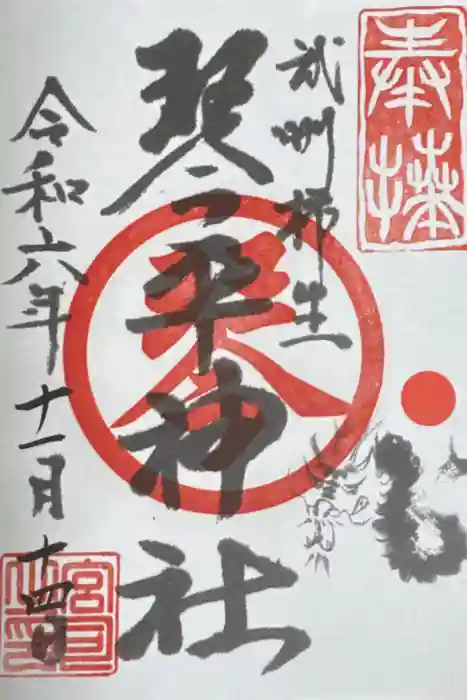 奉拝
武州柿生
琴平神社
令和六年十一月十四日